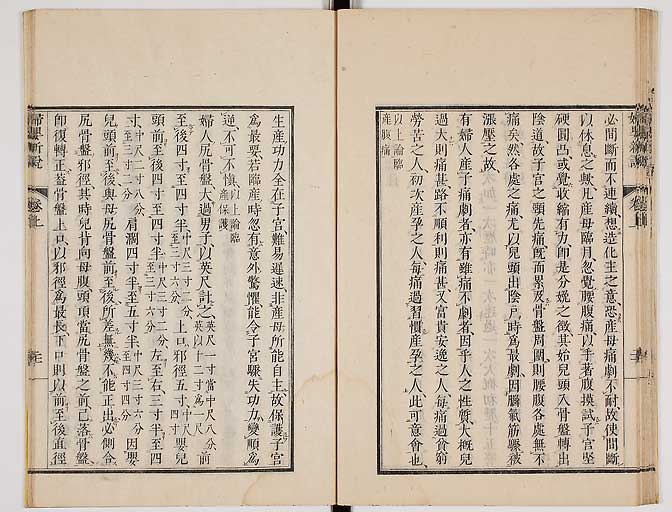 必間斷而不連續、想造化主之意、恐產母痛劇不耐、故使間斷
以休息之歟、凡產母臨月、忽覺腰腹痛、以手著腹摸試、子宮堅
硬圓凸、或覺收縮有力、卽是分娩之徵、其始兒頭入骨盤、轉出
陰道、故子宮之頸先痛、旣而累及骨盤周圍、則腰腹各處無不
痛矣、然各處之痛、尤以兒頭出陰戶時爲最劇、因腦氣筋緊被
漲壓之故、
有婦人產子痛劇者、亦有雖痛不劇者、因乎人之性質、大槪兒
過大則痛甚、路不順利則痛甚、又富貴安逸之人、每痛過貧窮
勞苦之人、初次產孕之人、每痛過習慣產孕之人、此可意會也、
以上論臨
產腹痛
生產功力、全在子宮、難易遲速、非產母所能自主、故保護子宮
爲最要、若臨產時忽有意外驚懼、能令子宮驟失功力、變順爲
逆、不可不愼、以上論臨
產保護
婦人尻骨盤大過男子、以英尺計之、英尺一寸當中尺八分、
英以十二寸爲一尺前
至後四寸至四寸半、中尺三寸二分、
至三寸六分上口邪徑五寸、中尺
四寸嬰兒
頭前至後四寸至四寸半、中尺三寸二分
至三寸六分左至右三寸半至四
寸、中尺二寸八分、
至三寸二分肩濶四寸半至五寸半、中尺三寸六分
至四寸四分因嬰
兒頭前至後、與母尻骨盤前至後、所差無幾、不能正出、必側合
尻骨盤邪徑、其時兒背向母腹、頭頂當尻骨盤之前、已落骨盤、
卽復轉正、蓋骨盤上口、以邪徑爲最長、下口則以前至後直徑
婦嬰新說
卷上